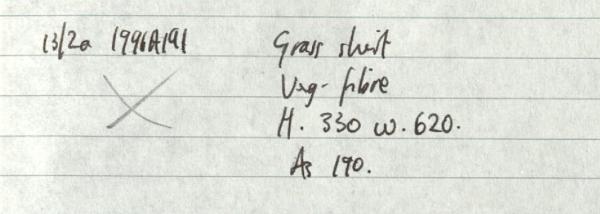 13/2a 1996A191 Grass skirt
Veg- fibre
H. 330 W. 620.
As 190.